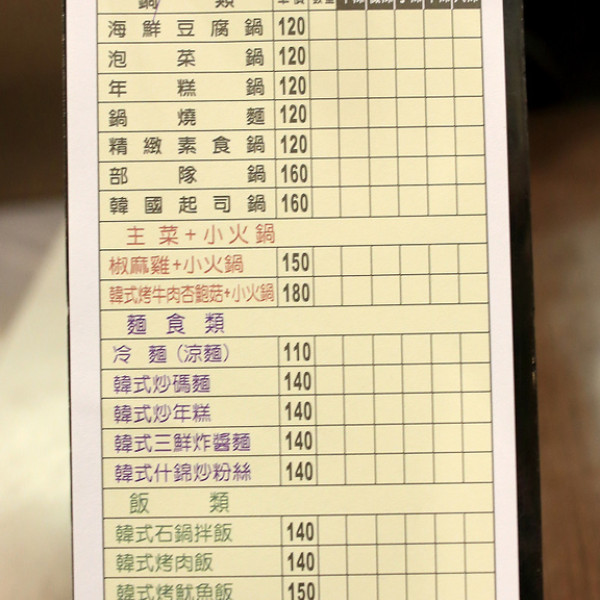 鍋 類 單價 數量
海鮮豆腐鍋 120
泡菜鍋 120
年糕鍋 120
鍋燒麵 120
精緻素食鍋 120
部隊鍋 160
韓國起司鍋 160
主菜+小火鍋
椒麻雞+小火鍋 150
韓式烤牛肉杏鮑菇+小火鍋 180
麵食類
冷麵(涼麵) 110
韓式炒碼麵 140
韓式炒年糕 140
韓式三鮮炸醬麵 140
韓式什錦炒粉絲 140
飯類
韓式石鍋拌飯 140
韓式烤肉飯 140
韓式烤魷魚飯 150